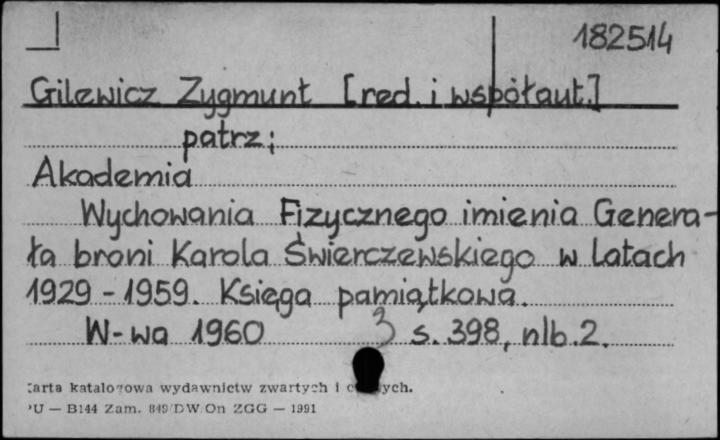 182514
Gilewicz Zygmunt [red. i współaut.]
patrz:
Akademia
Wychowania Fizycznego imienia Genera-
ła broni Karola Świerczewskiego w latach
1929-1959. Księga pamiątkowa.
W-wa 1960 3 s. 398, nlb. 2.
Karta katalogowa wydawnictw zwartych i ych.
PU — B144 Zam. 849/DW/On ZGG — 1991